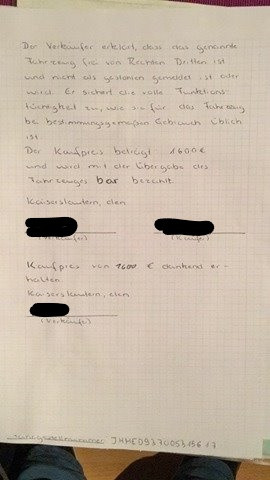 Der Verkäufer erklärt, dass das genannte
Fahrzeug frei von Rechten Dritten ist
und nicht als gestohlen gemeldet ist oder
wird. Er sichert die volle Funktions-
tüchtigkeit zu, wie sie für das Fahrzeug
bei bestimmungsgemäßen Gebrauch üblich
ist
Der Kaufpreis beträgt 1600€
und wird mit der Übergabe des
Fahrzeuges bar bezahlt.
Kaiserslautern, den
(Verkäufer) (Käufer)
Kaufpreis von 1600 € dankend er-
halten.
Kaiserslautern, den
(Verkäufer)